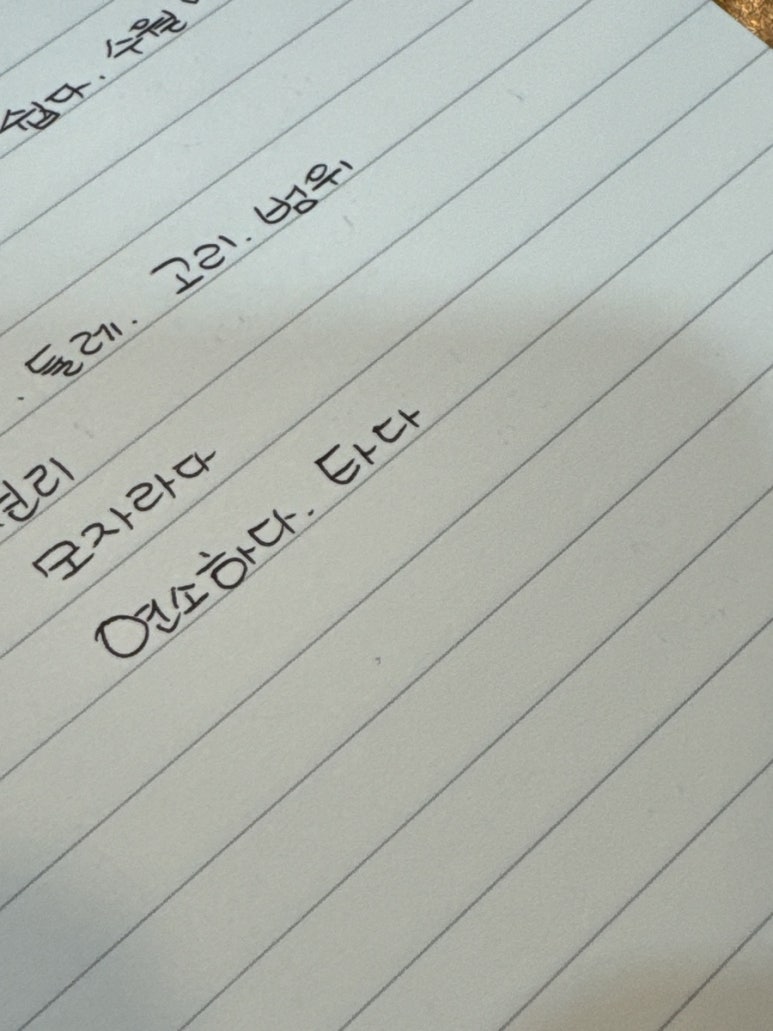 쉽다. 수월
둘레. 고리. 범위
권리
모자라다
연소하다. 타다